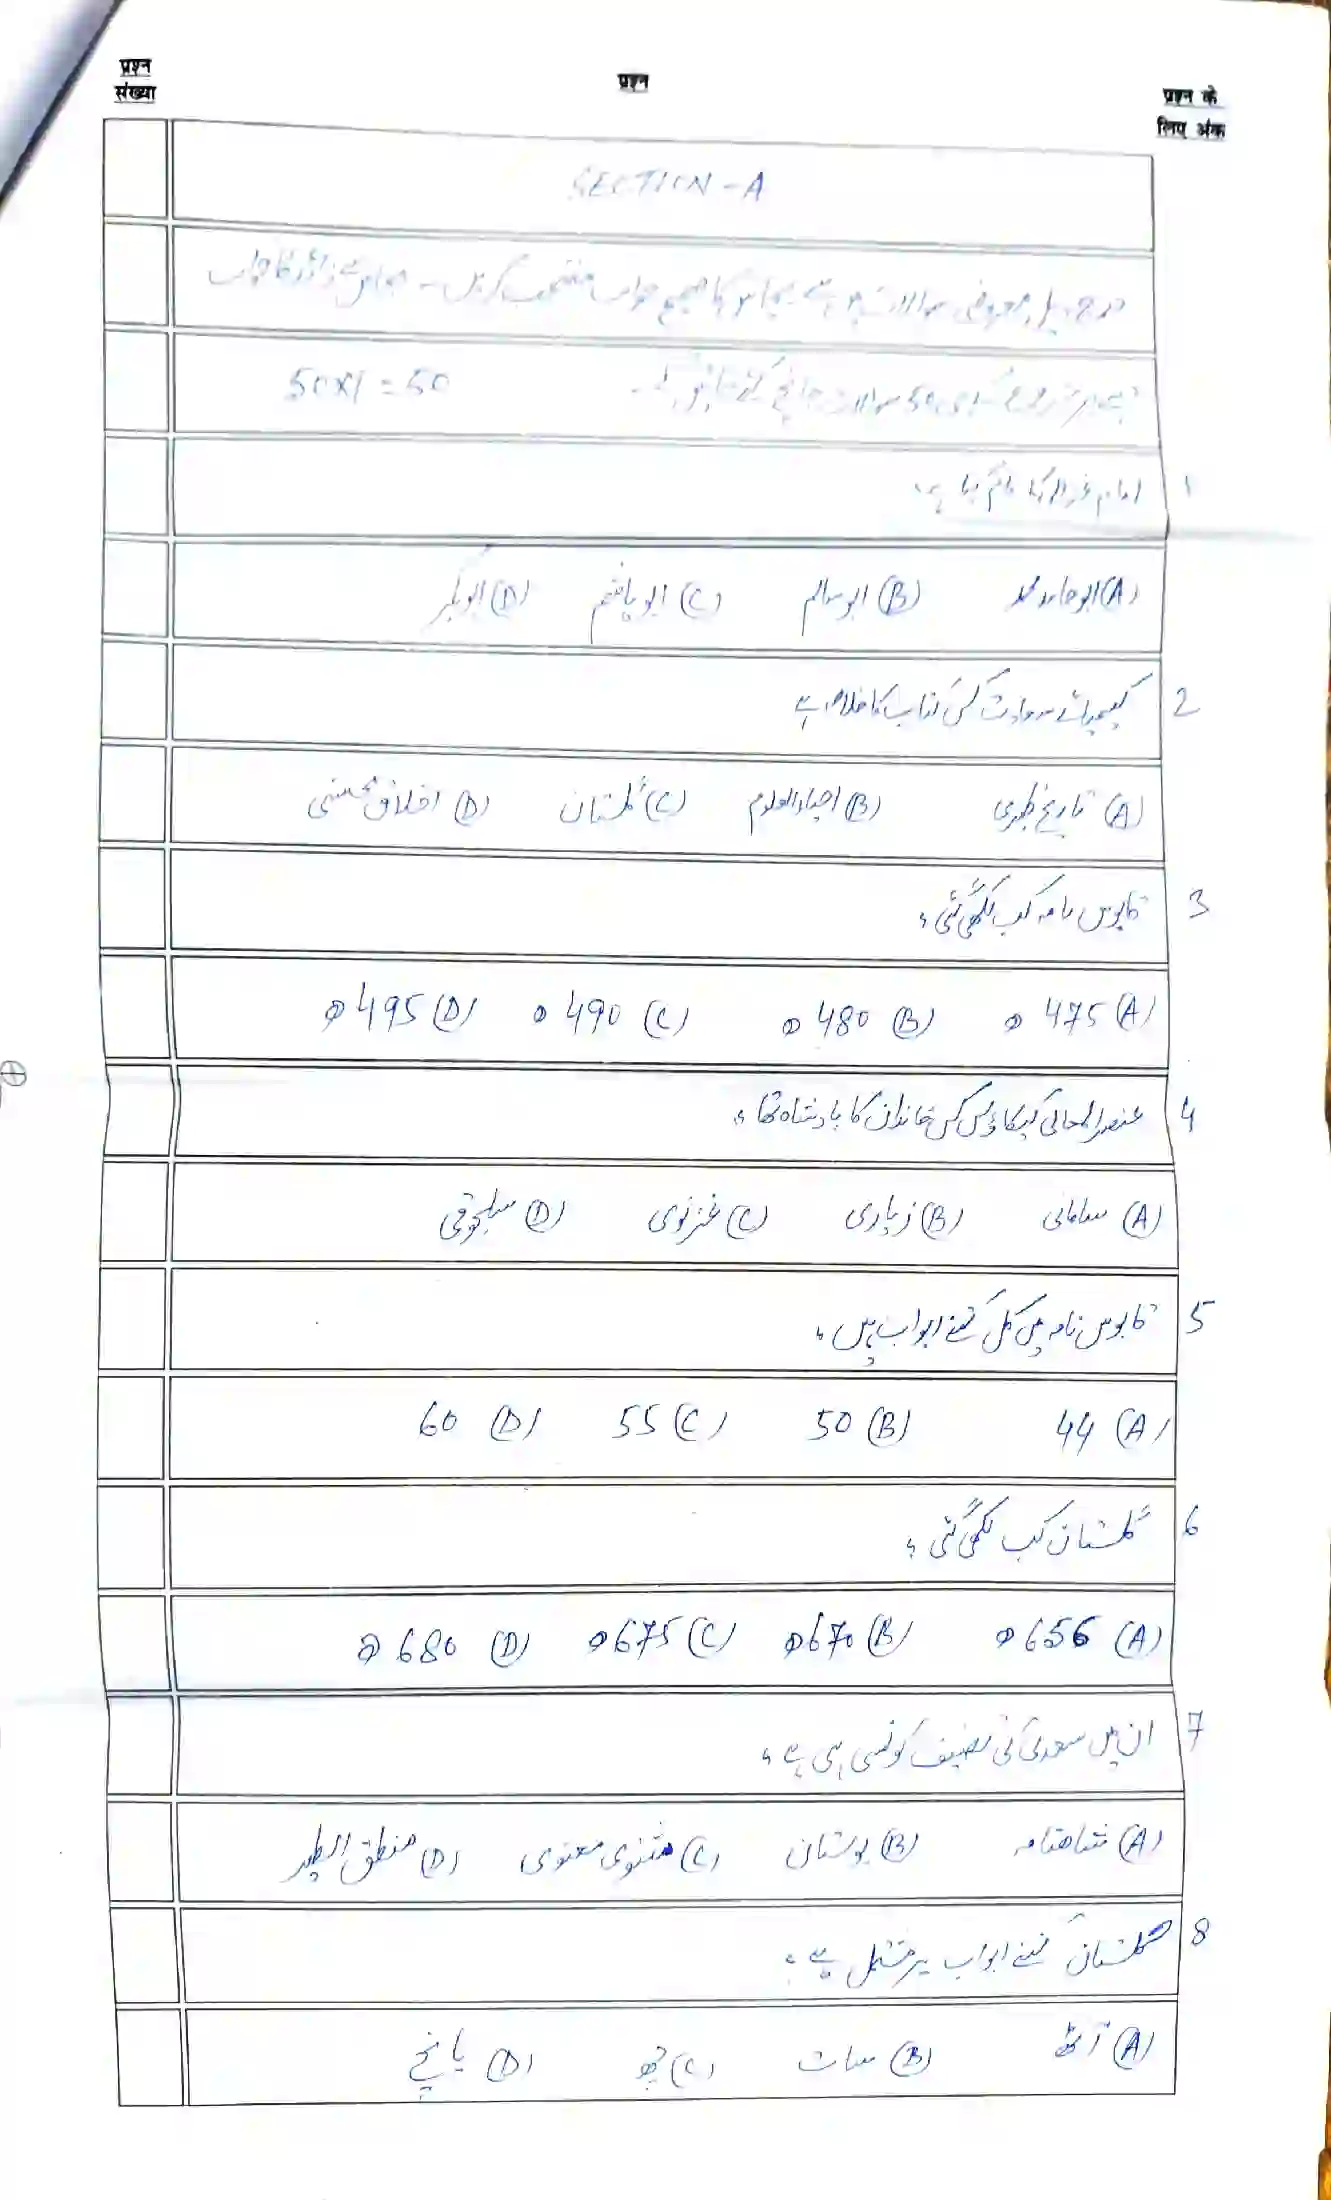 प्रश्न संख्या
प्रश्न
प्रश्न के लिए अंक
SECTION - A
درج ذیل معروضی سوالات میں سے پچاس کا صحیح جواب منتخب کریں۔ پچاس سے زائد کا جواب
50x1 = 50
1 امام غزالی کا نام کیا ہے؟
(A) ابو حامد محمد (B) ابو سالم (C) ابو ہاشم (D) ابو بکر
2 کیمیائے سعادت کس کتاب کا خلاصہ ہے
(A) تاریخ طبری (B) احیاء العلوم (C) گلستان (D) اخلاق محسنی
3 قابوس نامہ کب لکھی گئی؟
(A) 475 ھ (B) 480 ھ (C) 490 ھ (D) 495 ھ
4 عنصر المعالی کیکاؤس کس خاندان کا بادشاہ تھا؟
(A) سامانی (B) زیاری (C) غزنوی (D) سلجوقی
5 قابوس نامہ میں کل کتنے ابواب ہیں؟
(A) 44 (B) 50 (C) 55 (D) 60
6 گلستان کب لکھی گئی؟
(A) 656 ھ (B) 670 ھ (C) 675 ھ (D) 680 ھ
7 ان میں سعدی کی تصنیف کونسی ہے؟
(A) شاہنامہ (B) بوستان (C) مثنوی معنوی (D) منطق الطیر
8 گلستان کتنے ابواب پر مشتمل ہے؟
(A) آٹھ (B) سات (C) چھ (D) پانچ